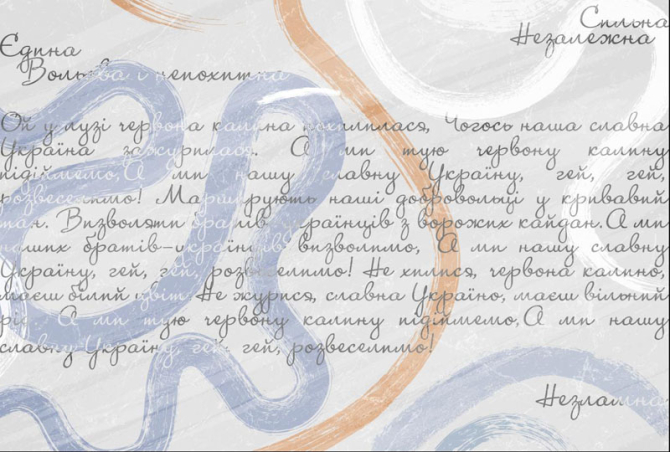 Сильна
Незалежна
Єдина
Вольова і непохитна
Ой у лузі червона калина похилилася, Чогось наша славна
Україна зажурилася. А ми тую червону калину
підіймемо,А ми нашу славну Україну, гей, гей,
розвеселимо! Марширують наші добровольці у кривавий
тан. Визволяти братів-українців з ворожих кайдан.А ми
наших братів-українців визволимо, А ми нашу славну
Україну, гей, гей, розвеселимо! Не хилися, червона калино,
маєш білий цвіт. Не журися, славна Україно, маєш вільний
рід. А ми тую червону калину підіймемо,А ми нашу
славну Україну, гей, гей, розвеселимо!
Незламна